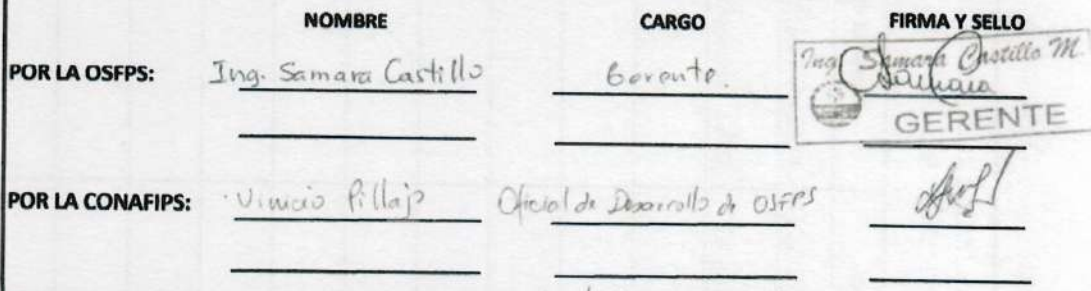 NOMBRE CARGO FIRMA Y SELLO
POR LA OSFPS: Ing. Samara Castillo Gerente. Ing. Samara Castillo M.
Samara
GERENTE
POR LA CONAFIPS: Vinicio Pillajo Oficial de Desarrollo de OSFPS